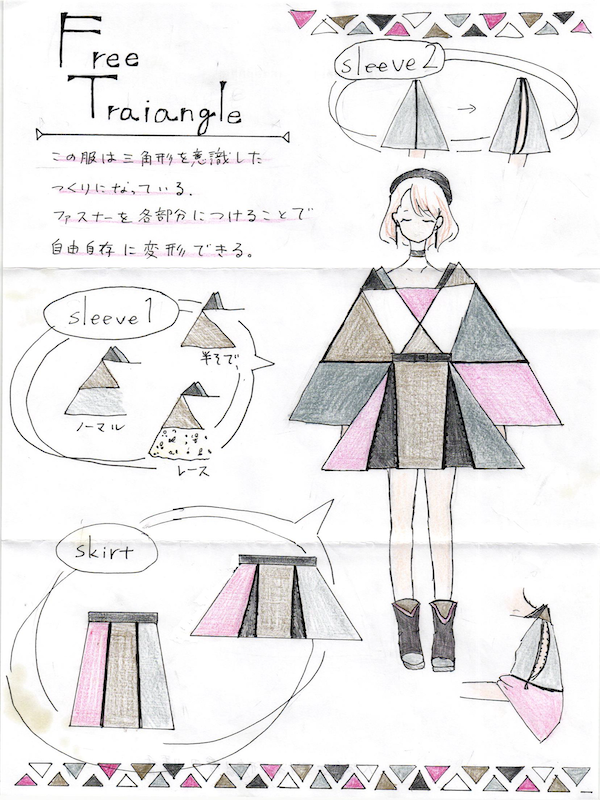 Free
Traiangle
この服は三角形を意識した
つくりになっている.
ファスナーを各部分につけることで
自由自存に変形できる。
sleeve2
sleeve1
半そで
ノーマル
レース
skirt